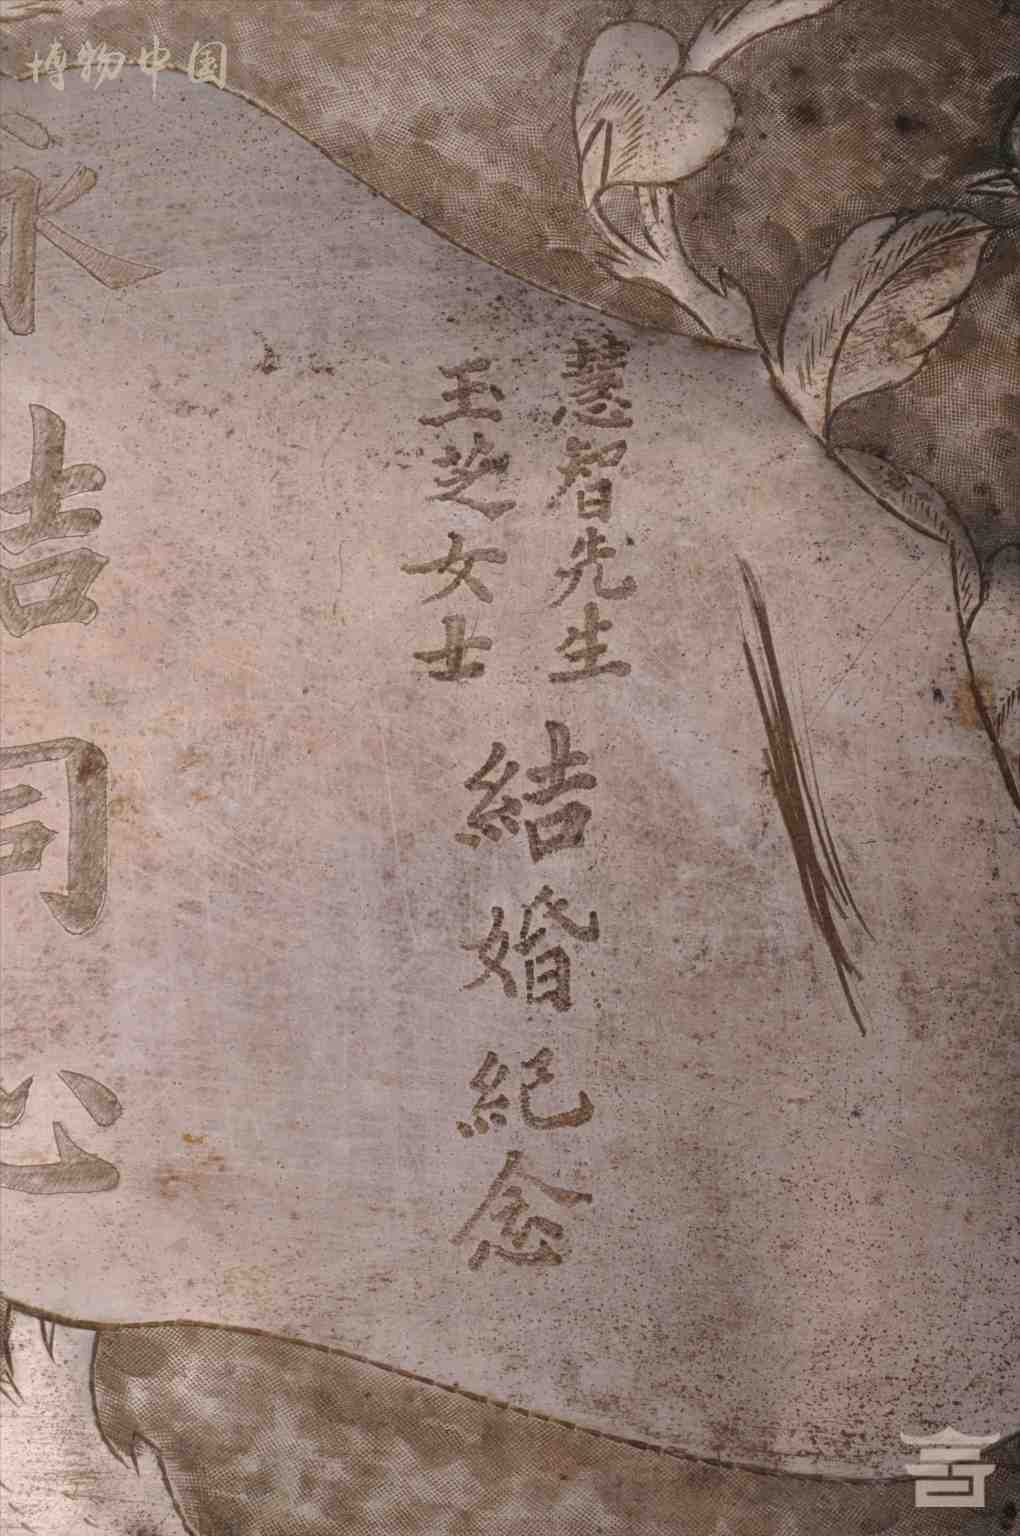 博物中国
慧智先生
玉芝女士
結婚紀念
永結同心